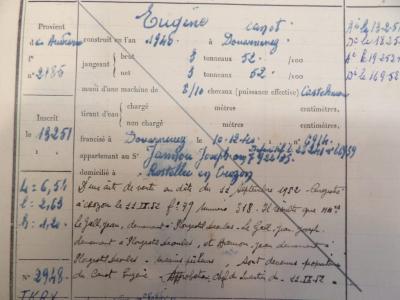 Eugène canot
Provient
de Auterne construit en l'an 1946 à Douarnenez
jaugeant brut 3 tonneaux 52 /100
net 3 tonneaux 52 /100
n° 2186
muni d'une machine de 8/10 chevaux (puissance effective) Castelnau
tirant d'eau chargé mètres centimètres.
non chargé mètres centimètres.
Inscrit
le 13.2.51
francisé à Douarnenez le 10-12-46 n° 6914
appartenant au Sr Jannou Joseph
domicilié à Rostellec en Crozon
L = 6,54
l = 2,63
h = 1,20
D'un acte de vente en date du 12 Septembre 1952 - Enregistré
à Crozon le 12 IX 52 f° 79 numéro 318. Il résulte que MM
Le Gall Jean, demeurant à Plougastel Daoulas - Le Gall Jean Joseph
demeurant à Plougastel Daoulas, et Hamon Jean demeurant à
Plougastel Daoulas - marins pêcheurs - sont devenus propriétaires
du Canot Eugène
N° 2948
Approbation Chef du Quartier du 12.IX.52